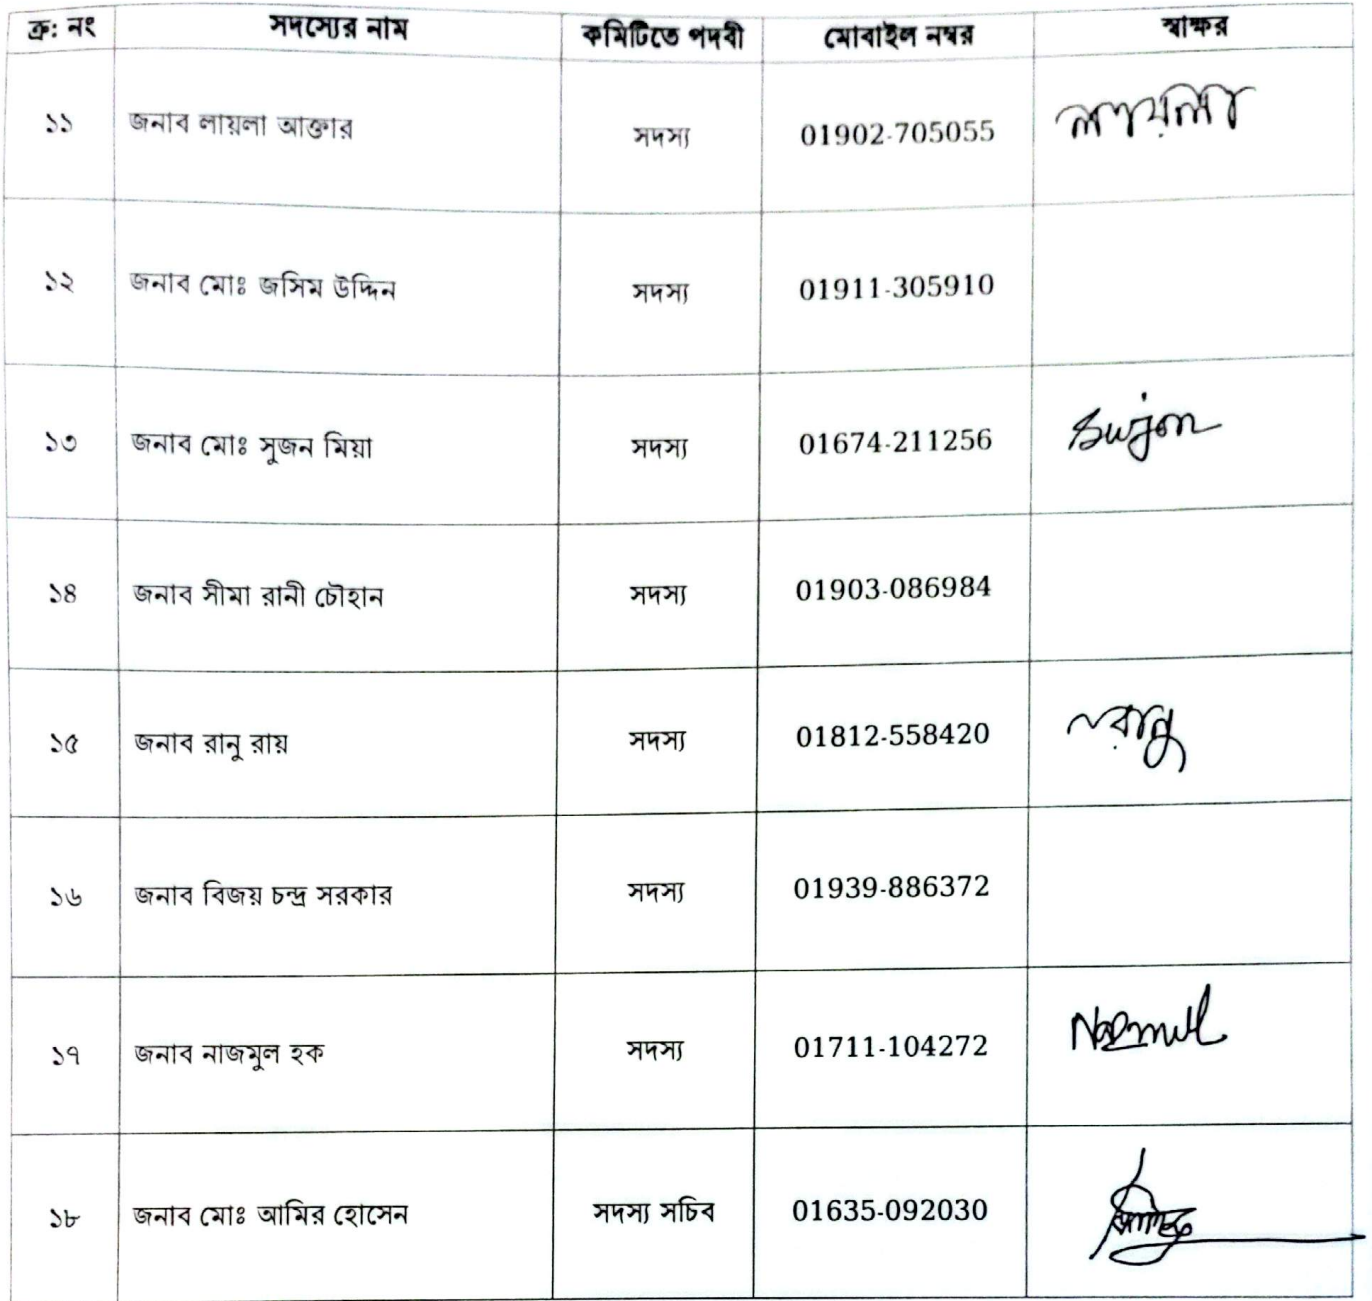 ক্র: নং সদস্যের নাম কমিটিতে পদবী মোবাইল নম্বর স্বাক্ষর
১১ জনাব লায়লা আক্তার সদস্য 01902-705055 লায়লা
১২ জনাব মোঃ জসিম উদ্দিন সদস্য 01911-305910
১৩ জনাব মোঃ সুজন মিয়া সদস্য 01674-211256 Sujon
১৪ জনাব সীমা রানী চৌহান সদস্য 01903-086984
১৫ জনাব রানু রায় সদস্য 01812-558420 রানু
১৬ জনাব বিজয় চন্দ্র সরকার সদস্য 01939-886372
১৭ জনাব নাজমুল হক সদস্য 01711-104272 Nazmul
১৮ জনাব মোঃ আমির হোসেন সদস্য সচিব 01635-092030